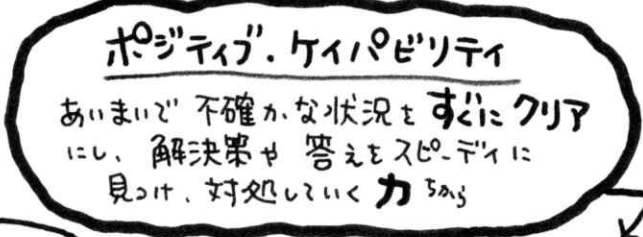 ポジティブ・ケイパビリティ
あいまいで 不確かな状況を すぐにクリア
にし、解決策や 答えをスピーディに
見つけ、対処していく 力 ちから